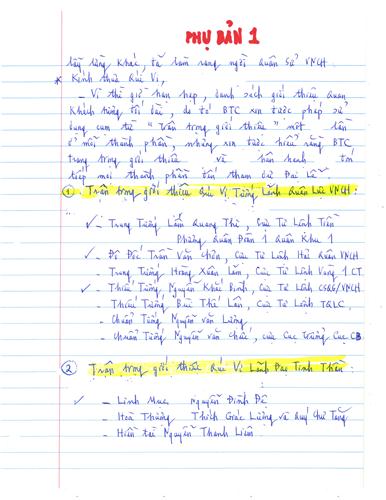 PHỤ BẢN 1
lẫy lừng khác, tô làm rạng ngời Quân Sử VNCH
* Kính thưa Quí Vị,
- Vì thì giờ hạn hẹp, danh sách giới thiệu Quan
khách tương đối dài, do đó BTC xin được phép sử
dụng cụm từ "Trân trọng giới thiệu" một lần
ở mỗi thành phần, nhưng xin được hiểu rằng BTC
trang trọng giới thiệu và hân hạnh tới
tiếp mọi thành phần tới tham dự Đại Lễ
① Trân trọng giới thiệu Quí Vị Tướng Lãnh Quân Lực VNCH:
✓ - Trung Tướng Lâm Quang Thi, Cựu Tư Lệnh Tiền
Phương Quân Đoàn 1 Quân Khu 1
✓ - Đô Đốc Trần Văn Chơn, Cựu Tư Lệnh Hải Quân VNCH
- Trung Tướng Hoàng Xuân Lãm, Cựu Tư Lệnh Vùng 1 CT.
✓ - Thiếu Tướng Nguyễn Khắc Bình, Cựu Tư Lệnh CSQG/VNCH
- Thiếu Tướng Bùi Thế Lân, Cựu Tư Lệnh TQLC.
- Chuẩn Tướng Nguyễn Văn Lượng
- Chuẩn Tướng Nguyễn Văn Chức, Cựu Cục Trưởng Cục CB.
② Trân trọng giới thiệu Quí Vị Lãnh Đạo Tinh Thần:
✓ - Linh Mục Nguyễn Đình Đệ
- Hoà Thượng Thích Giác Lượng và Quý Chư Tăng
- Hiền tài Nguyễn Thanh Liêm